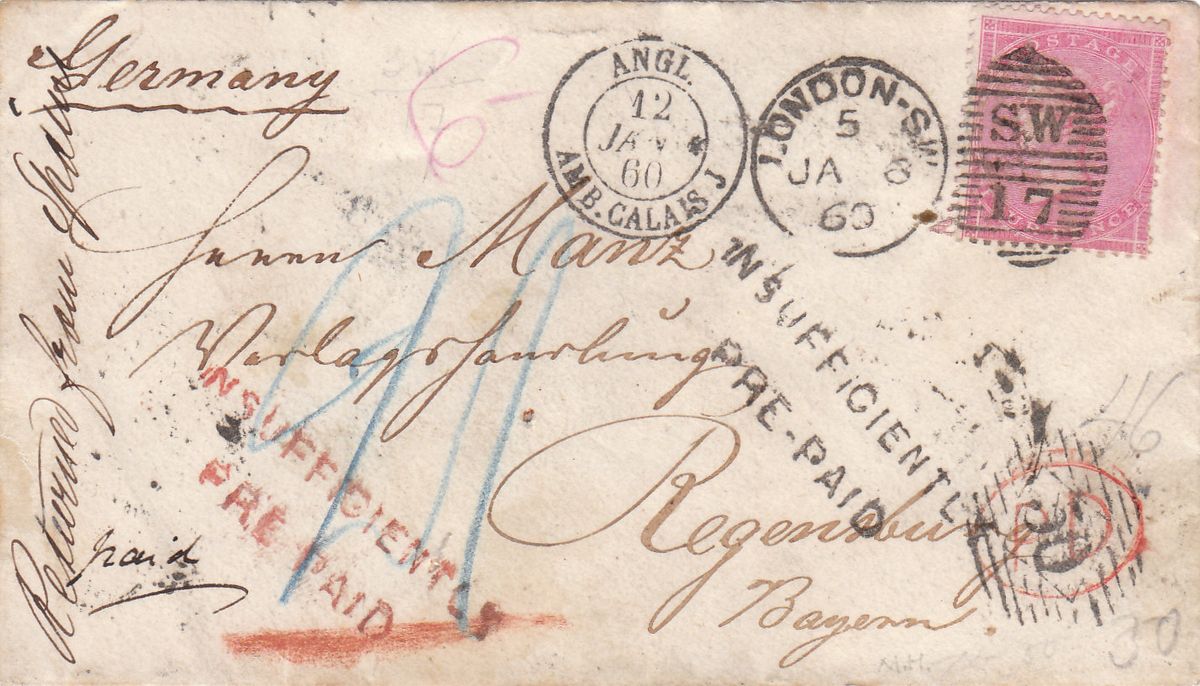 Germany
ANGL.
12
JANV
60
AMB. CALAIS J
LONDON-SW
5
JA 6
60
POSTAGE
SW
17
Herrn Manz
Verlagshandlung
Regensburg
Bayern.
INSUFFICIENTLY
PRE-PAID
INSUFFICIENTLY
PRE-PAID
Returned from
paid
30